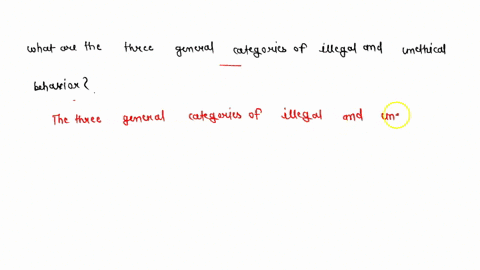 what are the three general categories of illegal and unethical
behavior?
The three general categories of illegal and un